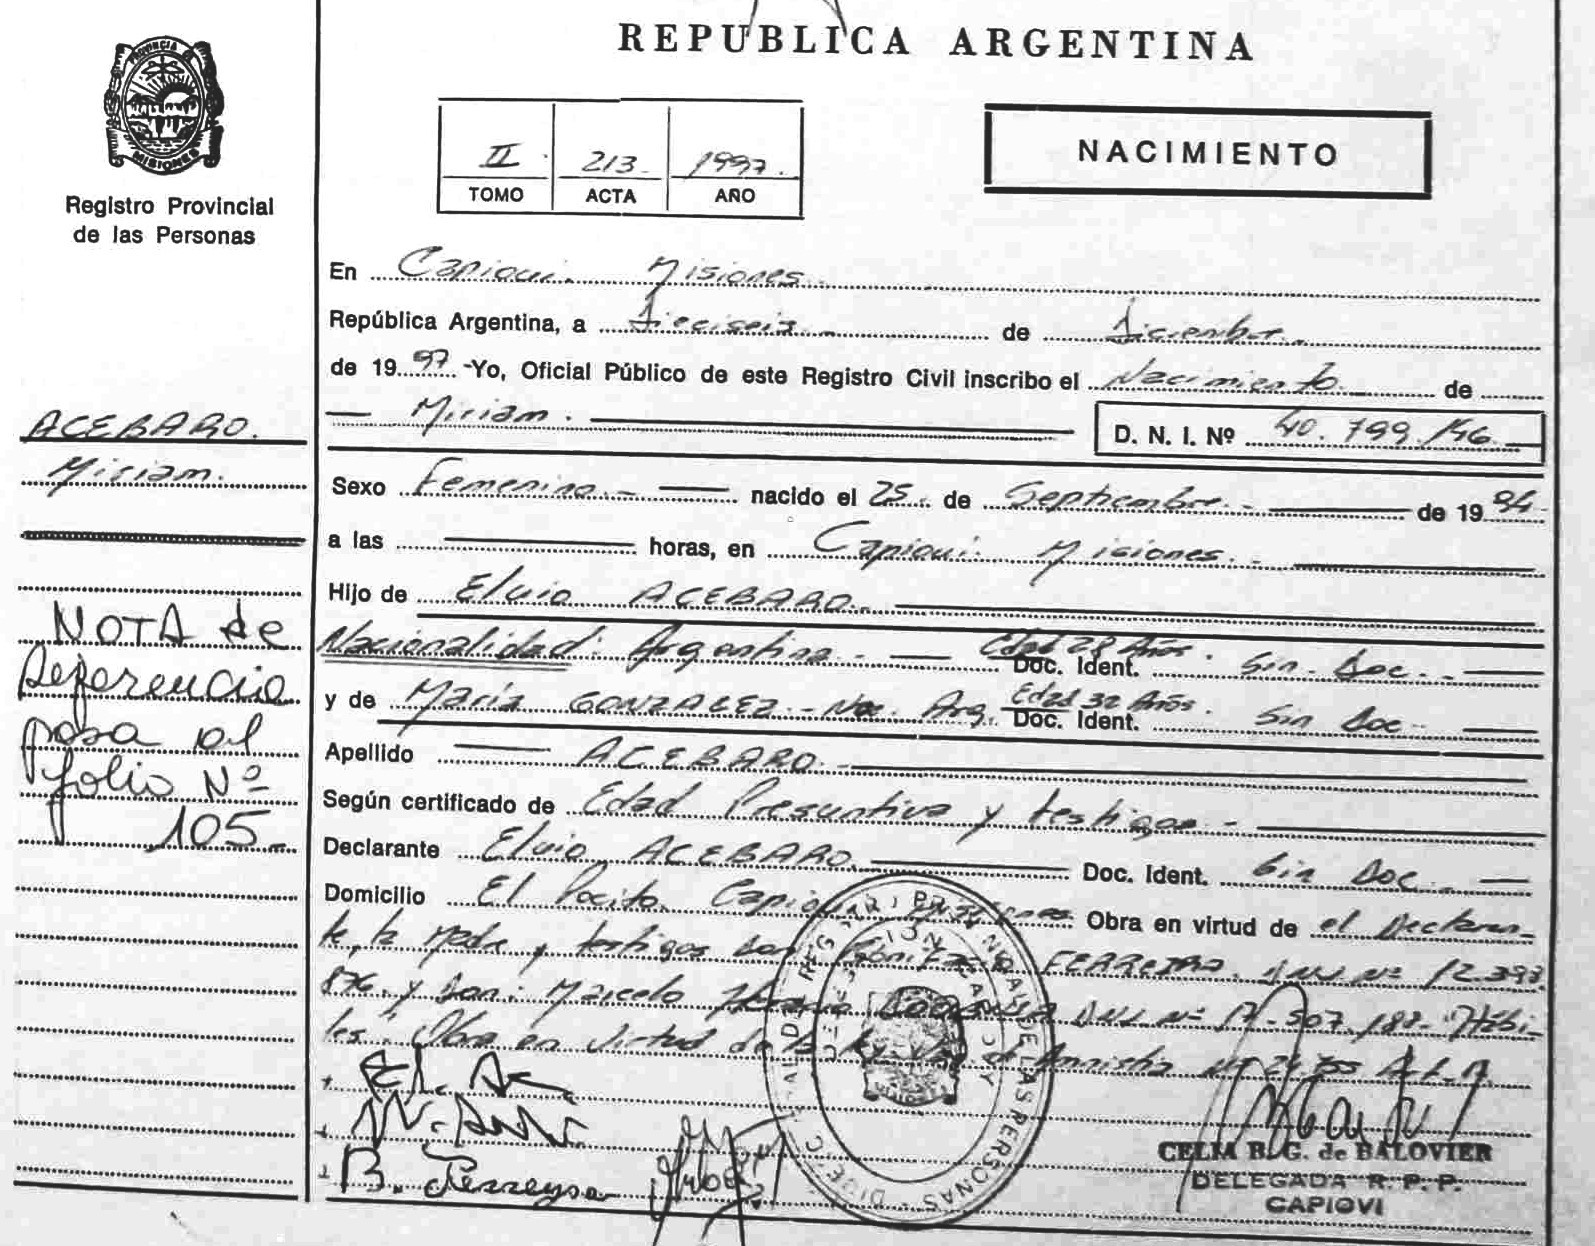 REPUBLICA ARGENTINA
PROVINCIA DE
MISIONES
Registro Provincial
de las Personas
II 213 1997
TOMO ACTA AÑO
NACIMIENTO
En Capiovi. Misiones
República Argentina, a Dieciseis de Diciembre
de 1997 - Yo, Oficial Público de este Registro Civil inscribo el Nacimiento de
Miriam. D. N. I. Nº 40.799.146
ACEBARO.
Miriam.
Sexo Femenino nacido el 25 de Septiembre de 1994
a las horas, en Capiovi. Misiones.
Hijo de Elvio ACEBARO.
Nacionalidad: Argentina. Edad 28 Años. Doc. Ident. Sin Doc.
y de María GONZALEZ - Nac. Arg. Edad 32 Años. Doc. Ident. Sin Doc
Apellido ACEBARO.
Según certificado de Edad Presuntiva y testigos
Declarante Elvio ACEBARO. Doc. Ident. Sin Doc
Domicilio El Pocito. Misiones Obra en virtud de el Declaran-
te, la Madre y testigos Don FERREYRA. DNI Nº 12.393
876. y Don: Marcelo DNI Nº 17.507.187. "Hábi-
les". Obra en virtud de la Ley de Amnistia Nº 24.755
NOTA de
Referencia
pasa al
folio Nº
105
B. Ferreyra
DE LAS PERSONAS
CELIA B. G. de BALOVIER
DELEGADA R. P. P.
CAPIOVI